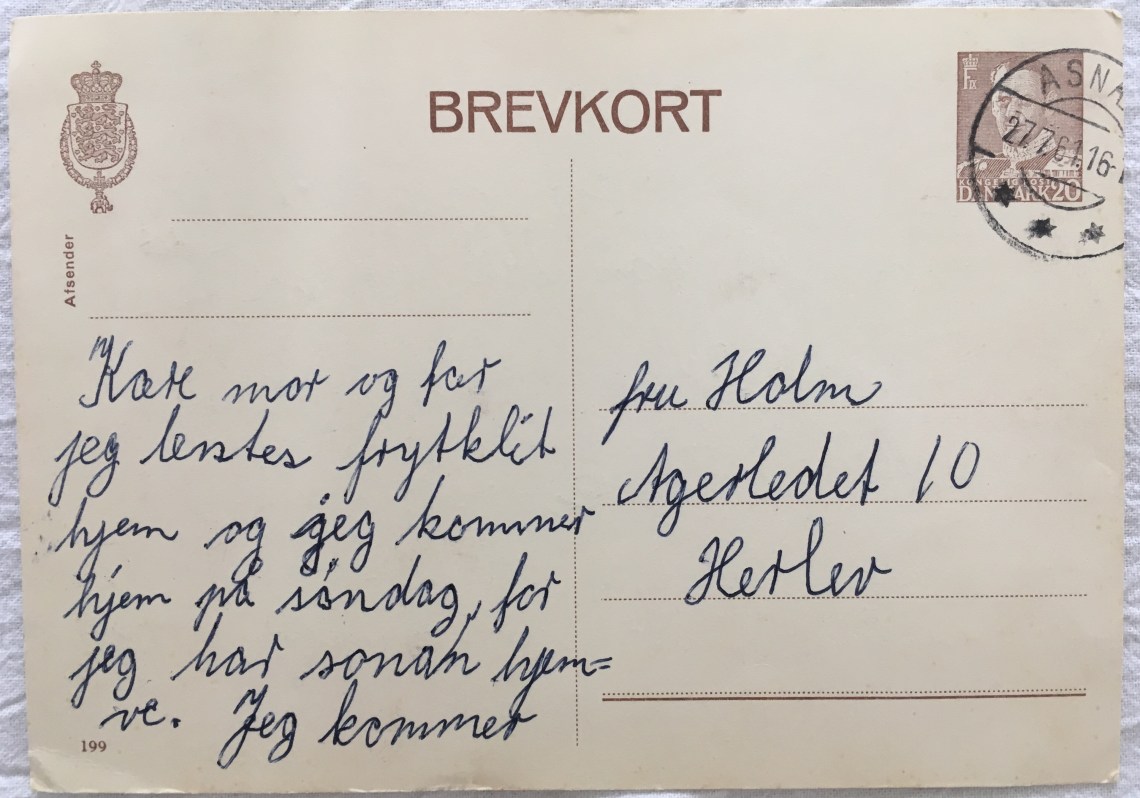 BREVKORT
Afsender
Kære mor og far
jeg længtes frytklit
hjem og jeg kommer
hjem på søndag, for
jeg har sonan hjem=
ve. Jeg kommer
199
F IX
DANMARK 20
ASNÆ
27.7.61.16-1
fru Holm
Agerledet 10
Herlev